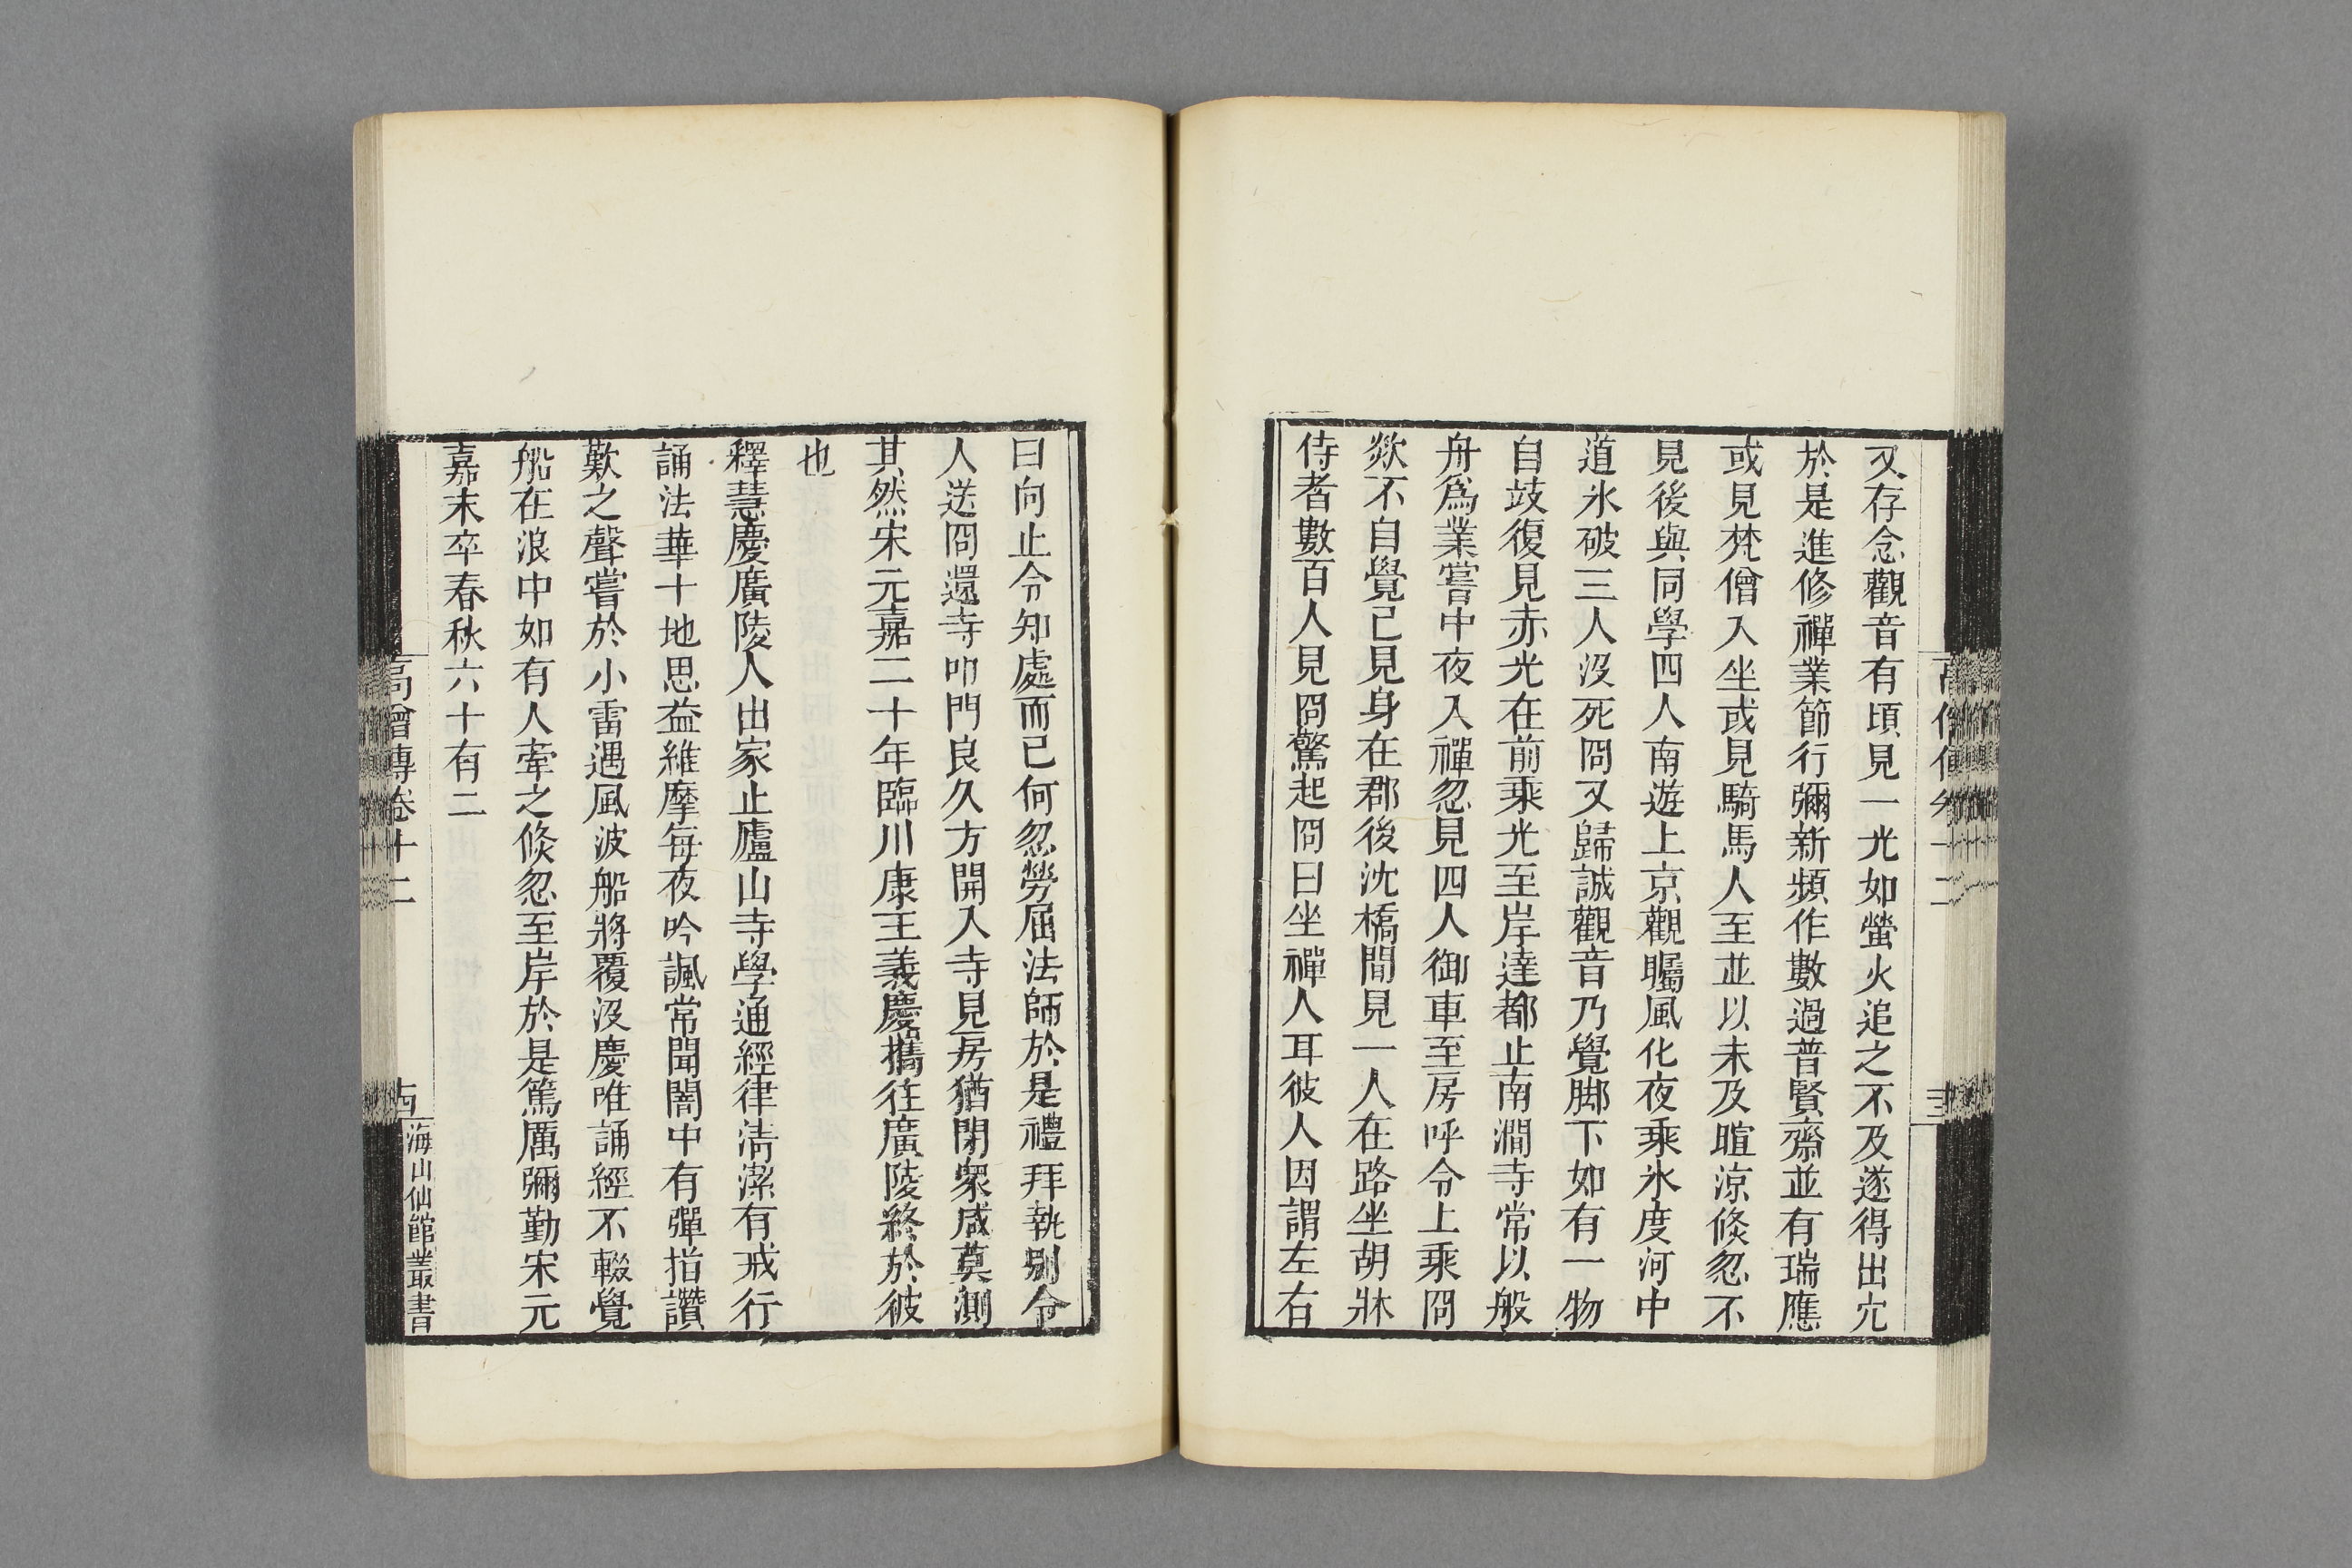 又存念觀音有頃見一光如螢火追之不及遂得出穴
於是進修禪業節行彌新頻作數過普賢齋並有瑞應
或見梵僧入坐或見騎馬人至並以未及暄涼倏忽不
見後與同學四人南遊上京觀矚風化夜乘氷度河中
道氷破三人沒死冏又歸誠觀音乃覺脚下如有一物
自歧復見赤光在前乘光至岸達都止南澗寺常以般
舟爲業嘗中夜入禪忽見四人御車至房呼令上乘冏
欻不自覺已見身在郡後沈橋間見一人在路坐胡牀
侍者數百人見冏驚起冏曰坐禪人耳彼人因謂左右
曰向止令知處而已何忽勞屈法師於是禮拜執別令
人送冏還寺叩門良久方開入寺見房猶閉衆咸莫測
其然宋元嘉二十年臨川康王義慶攜往廣陵終於彼
也
釋慧慶廣陵人出家止廬山寺學通經律淸潔有戒行
誦法華十地思益維摩每夜吟諷常聞闇中有彈指讚
歎之聲嘗於小雷遇風波船將覆沒慶唯誦經不輟覺
船在浪中如有人牽之倏忽至岸於是篤厲彌勤宋元
嘉末卒春秋六十有二
高僧傳卷十二
海山仙館叢書